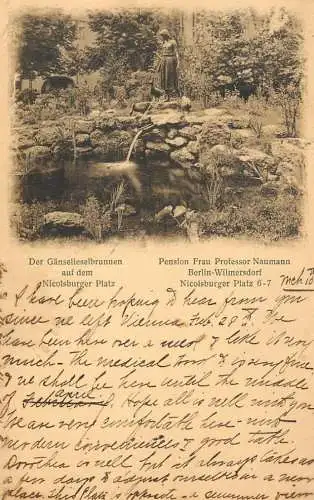 Der Gänselieselbrunnen
auf dem
Nicolsburger Platz
Pension Frau Professor Naumann
Berlin-Wilmersdorf
Nicolsburger Platz 6-7
Mch. 10
I have been hoping to hear from you
since we left Vienna Feb. 28th. We
have been here over a week & like it very
much - the medical work is very fine
& we shall be here until the middle
of April. Hope all is well with you.
We are very comfortable here - with
modern conveniences & good table.
Dorothea is well but it always takes a
few days to adjust ourselves in a new
place. This Platz is opposite - a